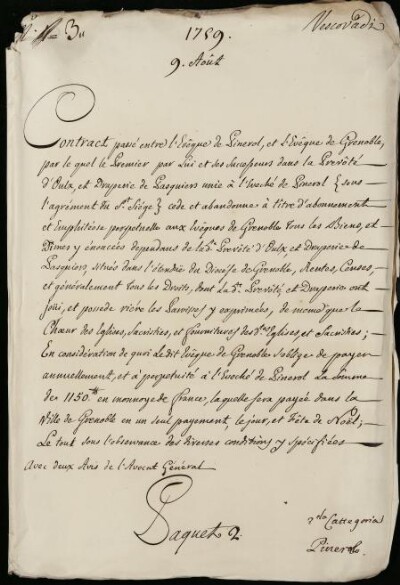 N.º 3.
1789.
Vescovadi
9. Août
Contract passé entre l'Evêque de Pinerol, et l'Evêque de Grenoble,
par le quel le Premier par Lui et ses Successeurs dans la Prevôté
d'Oulx, et Drapperie de Lasquiers unie à l'Eveché de Pinerol {sous
l'agrément du St. Siège} cede et abandonne à titre d'abonnement
et Emphitéose perpetuelle aux Evêques de Grenoble tous les Biens, et
Dimes y énoncées dependans de la de. Prevôté d'Oulx, et Drapperie de
Lasquiers, situés dans l'étendue du Diocèse de Grenoble, Rentes, Censes,
et généralement tous les Droits, dont la de. Prevôté, et Drapperie ont
joui, et possedé rière les Parroisses y exprimées, de même que le
Chœur des Eglises, Sacristies, et fournitures des dites Eglises, et Sacristies;
En considération de quoi Le dit Evêque de Grenoble s'oblige de payer
annuellement, et à perpetuité à l'Eveché de Pinerol La Somme
de 1150.tt en monnoye de France, laquelle sera payée dans la
Ville de Grenoble en un seul payement, le jour, et Fête de Noël;
Le tout sous l'observance des diverses conditions y spécifiées
Avec deux Avis de l'Avocat Général
Paquet 2.
Cattegoria
Pinerolo